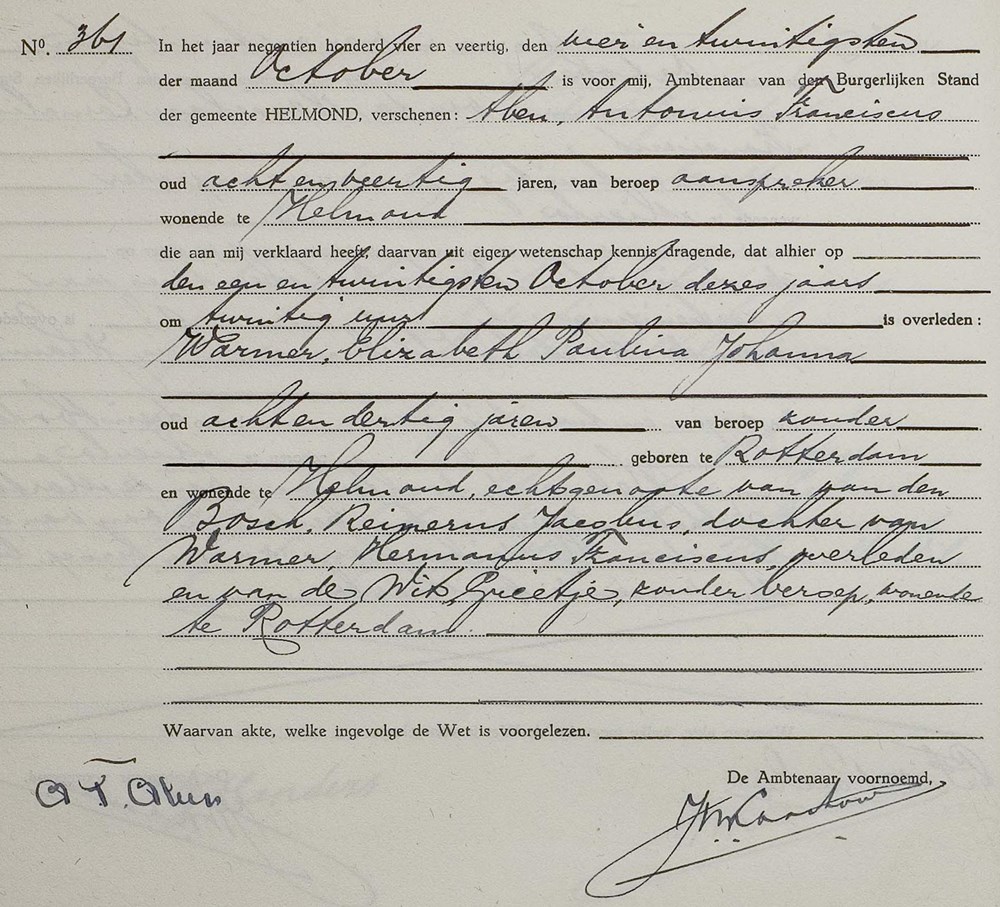 Nº. 361 In het jaar negentien honderd vier en veertig, den vier en twintigsten
der maand October is voor mij, Ambtenaar van den Burgerlijken Stand
der gemeente HELMOND, verschenen: Aben, Antonius Franciscus
oud acht en veertig jaren, van beroep aanspreker
wonende te Helmond
die aan mij verklaard heeft, daarvan uit eigen wetenschap kennis dragende, dat alhier op
den een en twintigsten October dezes jaars
om twintig uur is overleden:
Warmer, Elizabeth Paulina Johanna
oud acht en dertig jaren van beroep zonder
geboren te Rotterdam
en wonende te Helmond, echtgenoote van van den
Bosch, Reimerus Jacobus, dochter van
Warmer, Hermanus Franciscus, overleden
en van de Wit, Grietje, zonder beroep, wonende
te Rotterdam.
Waarvan akte, welke ingevolge de Wet is voorgelezen.
De Ambtenaar voornoemd,
A F. Aben